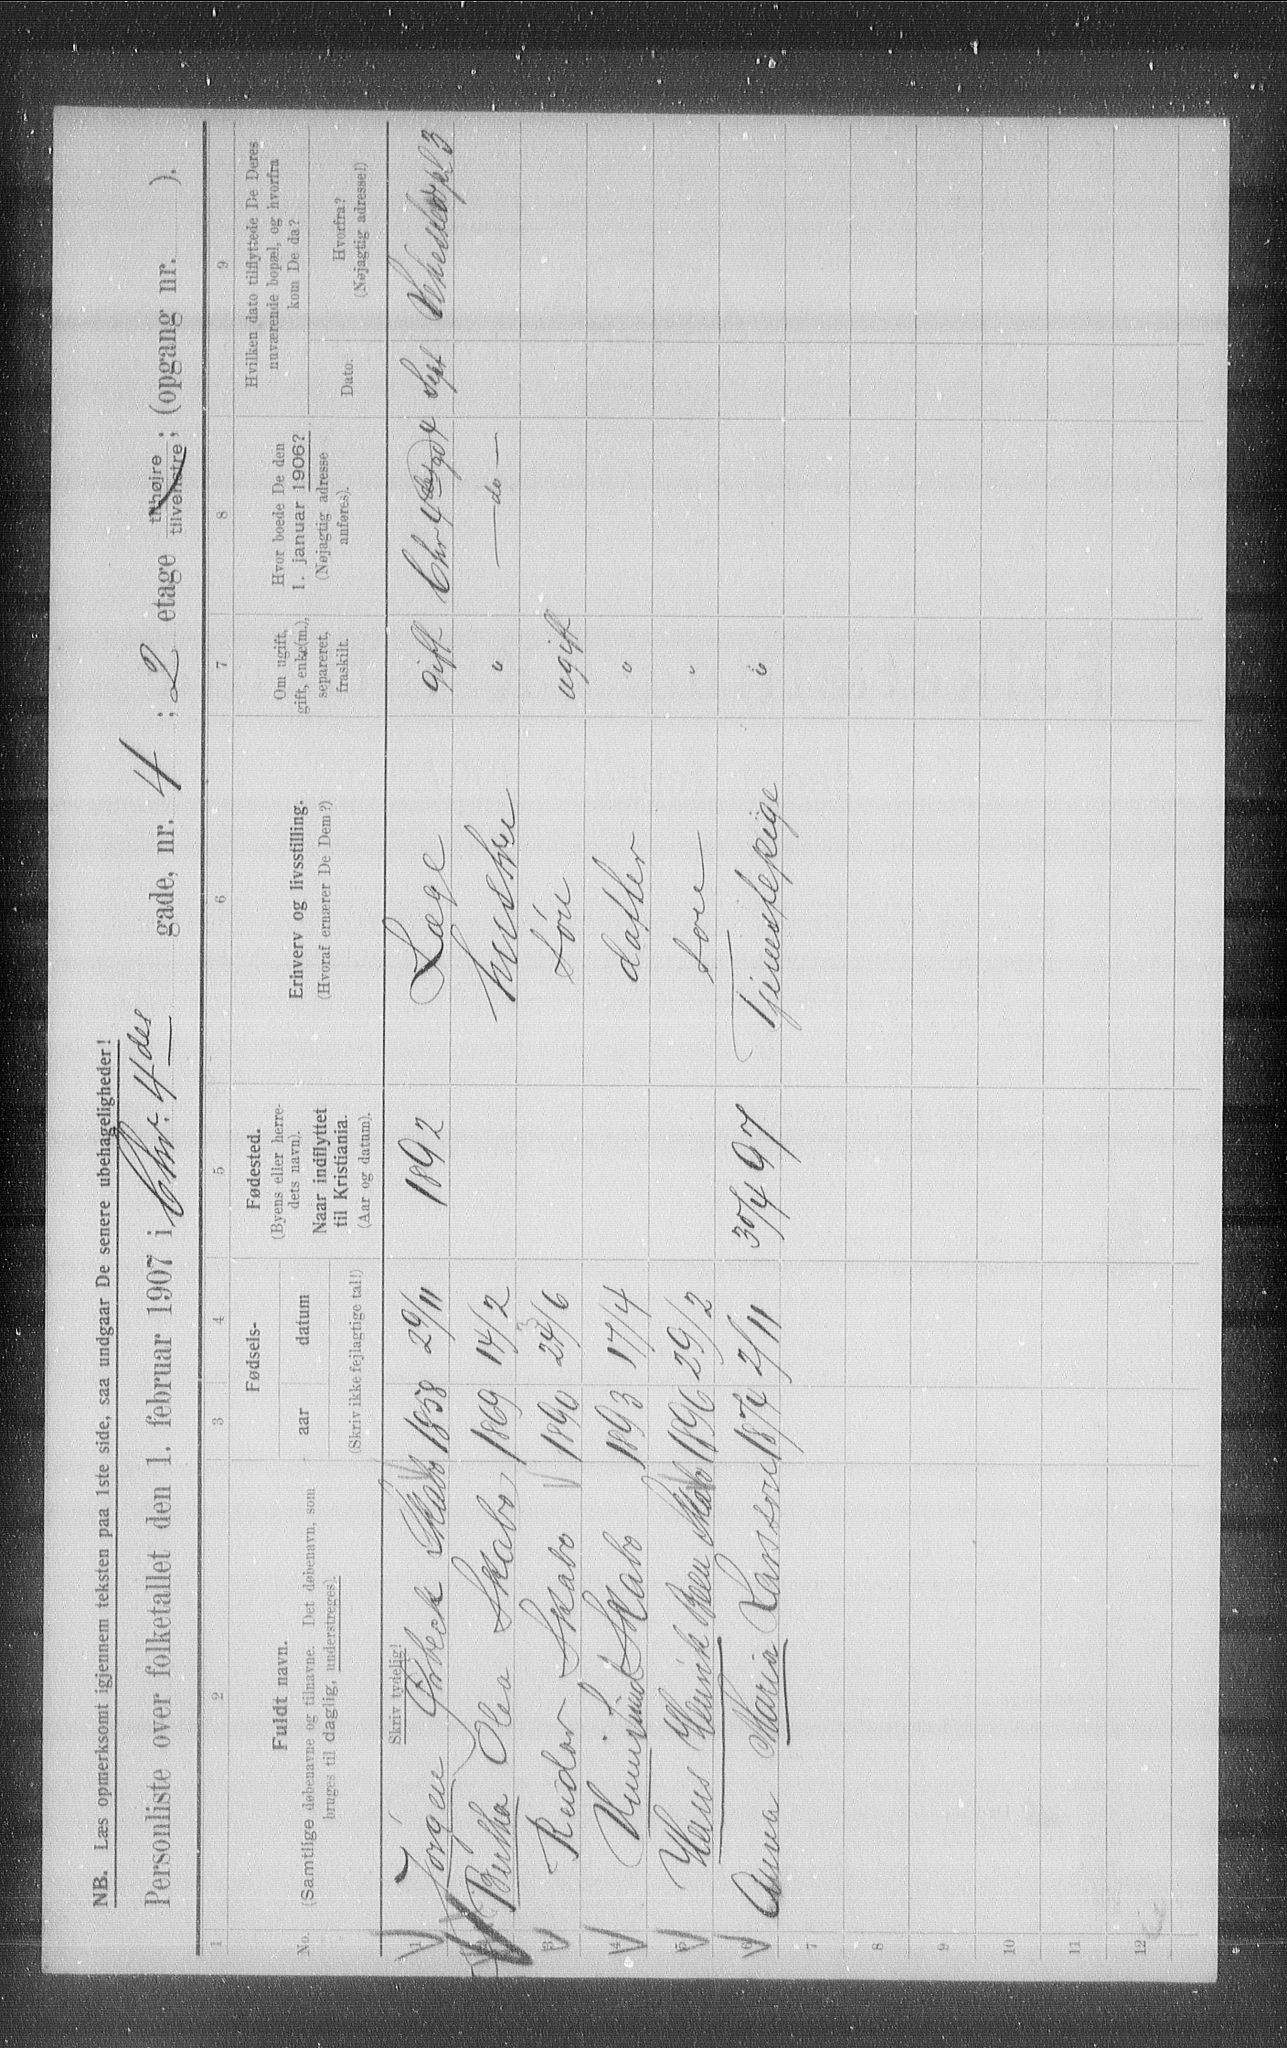 NB. Læs opmerksomt igjennem teksten paa 1ste side, saa undgaar De senere ubehageligheder!
Personliste over folketallet den 1. februar 1907 i Chr. 4des gade, nr. 4; 2 etage tilhøjre, tilvenstre; (opgang nr. ).
1 2 3 4 5 6 7 8 9
No.
Fuldt navn.
(Samtlige døbenavne og tilnavne. Det døbenavn, som
bruges til daglig, understreges).
Fødsels-
aar datum
(Skriv ikke fejlagtige tal!)
Fødested.
(Byens eller herre-
dets navn).
Naar indflyttet
til Kristiania.
(Aar og datum).
Erhverv og livsstilling.
(Hvoraf ernærer De Dem?)
Om ugift,
gift, enke(m.),
separeret,
fraskilt.
Hvor boede De den
1. januar 1906?
(Nøjagtig adresse
anføres).
Hvilken dato tilflyttede De Deres
nuværende bopæl, og hvorfra
kom De da?
Dato.
Hvorfra?
(Nøjagtig adresse!)
Skriv tydelig!
1 Jørgen Ørbeck Skabo 1858 29/11 1892 Læge gift Chr 4des gd 4 Sept
2 Birtha Olea Skabo 1869 14/2 hustru " — do —
3 Reidar Skabo 1890 24/6 søn ugift
4 Skabo 1893 17/4 datter "
5 Hans Henrik Skabo 1896 29/2 søn "
6 Anna Maria Larsson 1874 2/11 30/4 97 Tjenestepige "
7
8
9
10
11
12